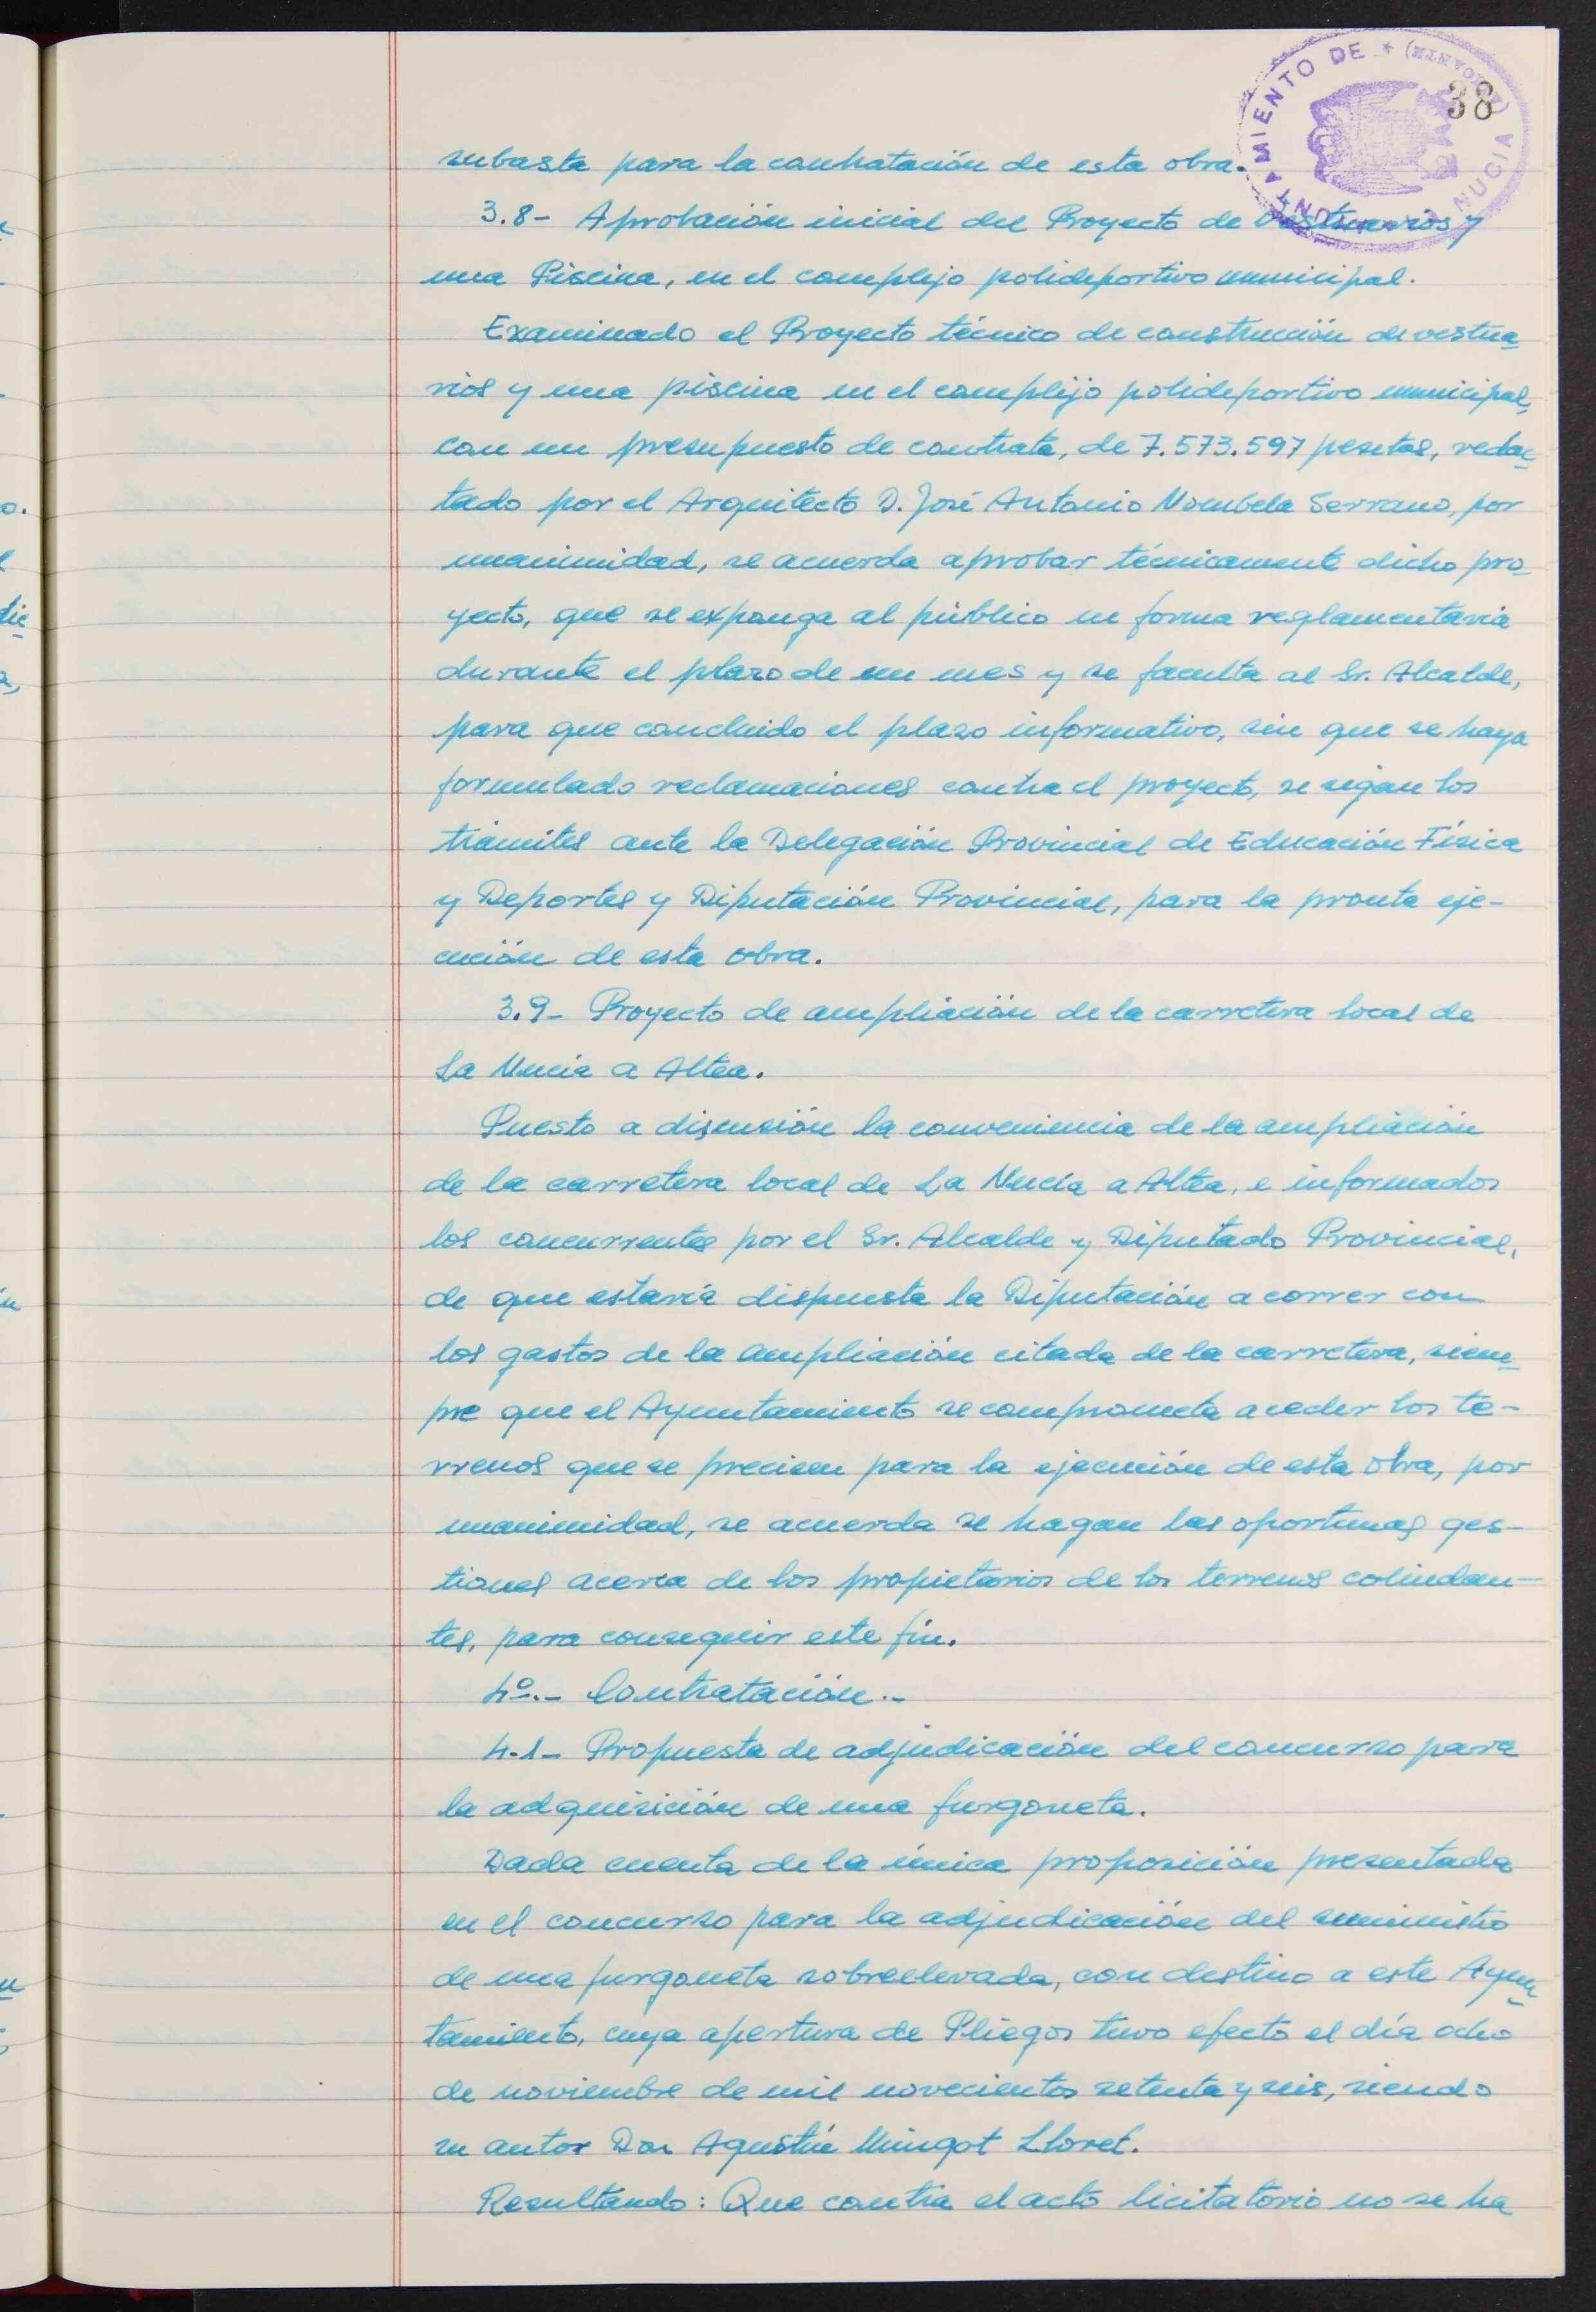 38
AYUNTAMIENTO DE * LA NUCIA (ALICANTE)
subasta para la contratación de esta obra.
3.8- Aprobación inicial del Proyecto de Vestuarios y
una Piscina, en el complejo polideportivo municipal.
Examinado el Proyecto técnico de construcción de vestua-
rios y una piscina en el complejo polideportivo municipal,
con un presupuesto de contrata, de 7.573.597 pesetas, redac-
tado por el Arquitecto D. José Antonio Nombela Serrano, por
unanimidad, se acuerda aprobar técnicamente dicho pro-
yecto, que se exponga al público en forma reglamentaria
durante el plazo de un mes y se faculta al Sr. Alcalde,
para que concluido el plazo informativo, sin que se haya
formulado reclamaciones contra el proyecto, se sigan los
trámites ante la Delegación Provincial de Educación Física
y Deportes y Diputación Provincial, para la pronta eje-
cución de esta obra.
3.9- Proyecto de ampliación de la carretera local de
La Nucia a Altea.
Puesto a discusión la conveniencia de la ampliación
de la carretera local de La Nucía a Altea, e informados
los concurrentes por el Sr. Alcalde y Diputado Provincial,
de que estaría dispuesta la Diputación a correr con
los gastos de la ampliación citada de la carretera, siem-
pre que el Ayuntamiento se comprometa a ceder los te-
rrenos que se precisen para la ejecución de esta obra, por
unanimidad, se acuerda se hagan las oportunas ges-
tiones acerca de los propietarios de los terrenos colindan-
tes, para conseguir este fin.
4º.- Contratación.-
4.1- Propuesta de adjudicación del concurso para
la adquisición de una furgoneta.
Dada cuenta de la única proposición presentada
en el concurso para la adjudicación del suministro
de una furgoneta sobreelevada, con destino a este Ayun-
tamiento, cuya apertura de Pliegos tuvo efecto el día ocho
de noviembre de mil novecientos setenta y seis, siendo
su autor Don Agustín Mingot Lloret.
Resultando: Que contra el acto licitatorio no se ha